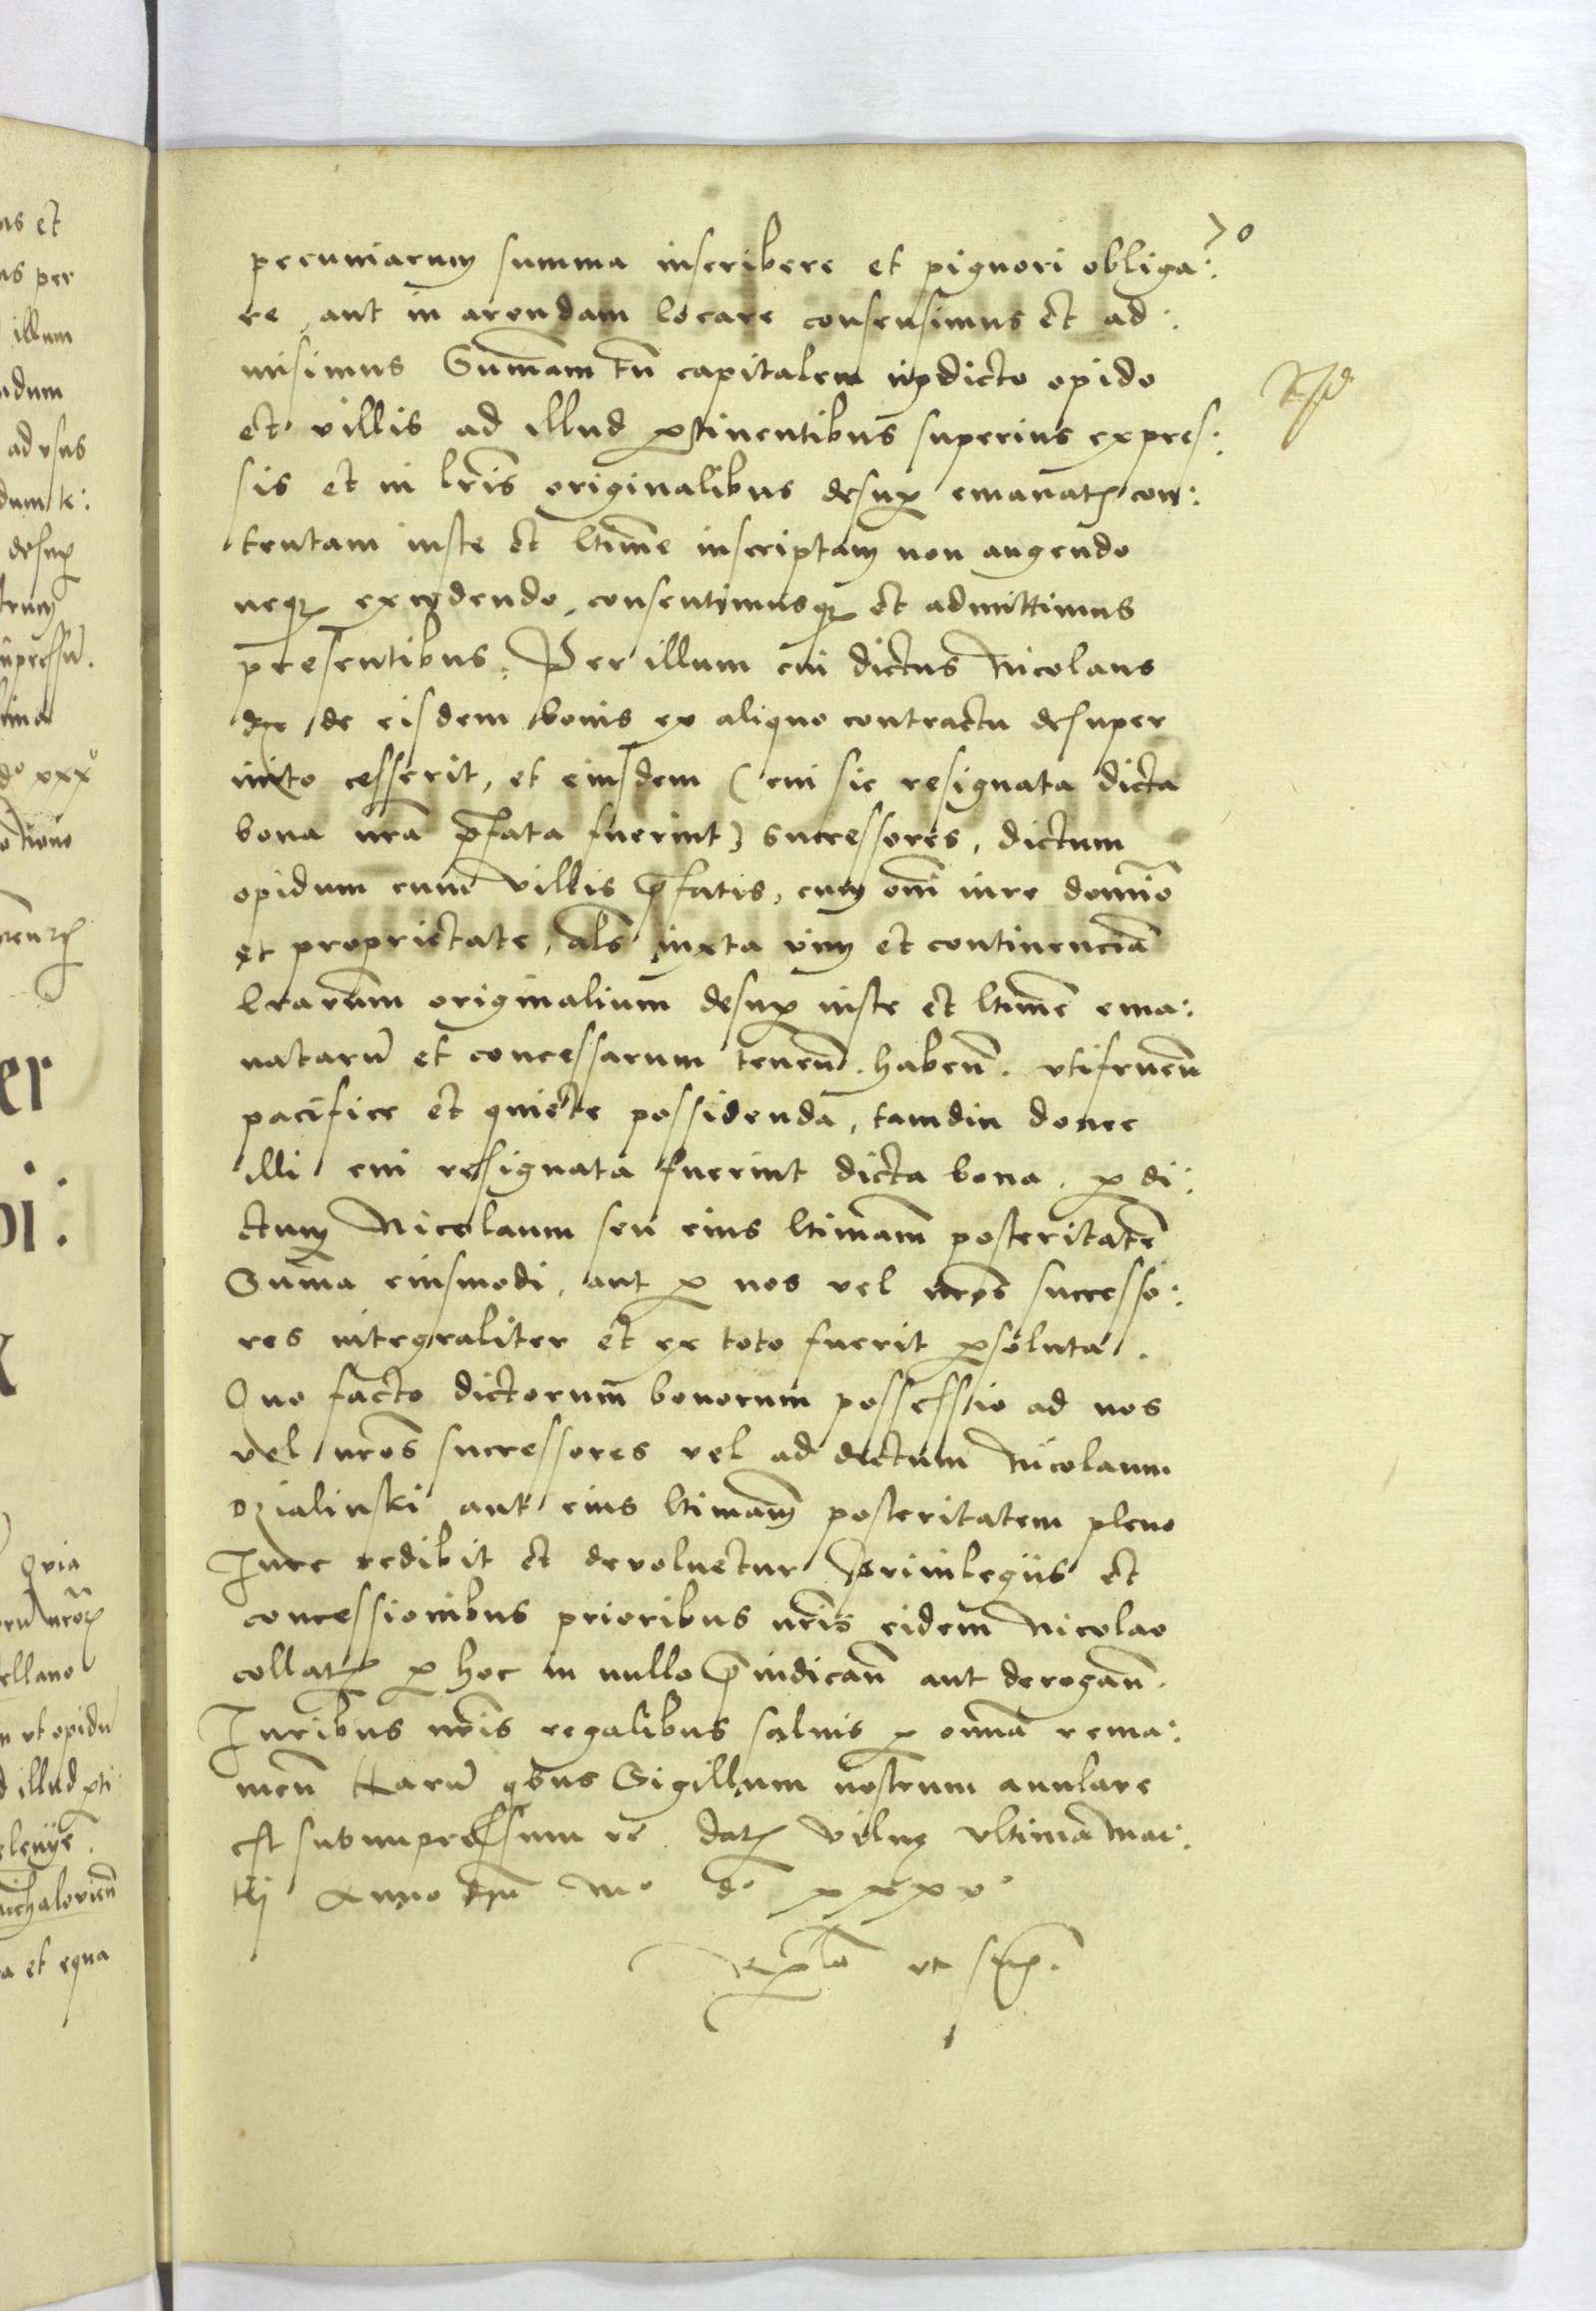 70
pecuniarum summa inscribere et pignori obliga:
re, aut in arendam locare consensimus et ad:
misimus Summam tn̄ capitalem in p̄dicto opido
et villis ad illud ꝑtinentibus superius expres:
sis et in lr̄is originalibus desuꝑ emanatꝫ con:
tentam iuste et ltim̄e inscriptam non augendo
neqꝫ excedendo, consentimusqꝫ et admittimus
presentibus. Per illum cui dictus Nicolaus
de eisdem bonis ex aliquo contractu desuper
inito cesserit, et eiusdem (cui sic resignata dicta
bona uti p̄fata fuerint) successores, dictum
opidum cum villis p̄fatis, cum om̄i iure domīo
et proprietate, als̄ iuxta vim et continenciā
lr̄arum originalium desuꝑ iuste et ltim̄e ema:
natarū et concessarum tenen̄. haben̄. vtifruen̄
pacifice et quiete possidenda, tamdiu donec
illi cui resignata fuerint dicta bona, ꝑ di:
ctum Nicolaum seu eius ltimam̄ posteritatē
Sum̄a eiusmodi, aut ꝑ nos vel nr̄os successo:
res integraliter et ex toto fuerit ꝑsoluta.
Quo facto dictorum bonorum possessio ad nos
vel nr̄os successores vel ad dictum Nicolaum
Dzialinski aut eius ltimam̄ posteritatem pleno
Iure redibit et devoluetur Priuilegiis et
concessionibus prioribus nr̄is eidem Nicolao
collatꝫ ꝑ hoc in nullo p̄iudican̄ aut derogan̄.
Iuribus nr̄is regalibus saluis ꝑ omnia rema:
nen̄ Harū qbus Sigillum nostrum annulare
est subimpressum rē. Datꝫ Vilnę vltima Mar:
tij Anno dn̄i Mº dº xxxvº
Relo ut supꝫ.